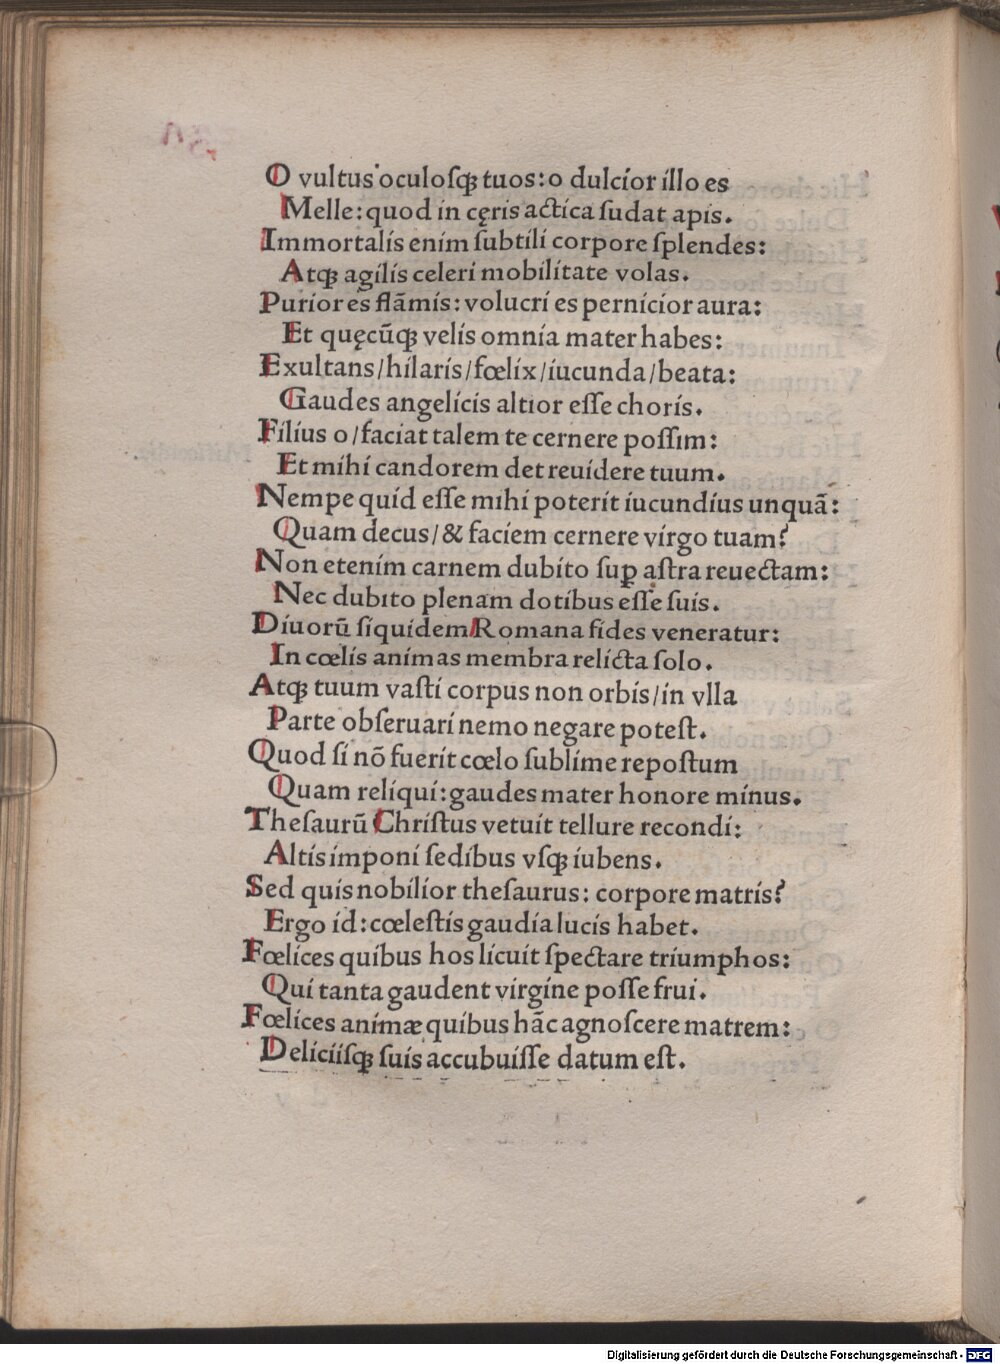 O vultus oculoſqꝫ tuos: o dulcior illo es
Melle: quod in cęris actica ſudat apis.
Immortalis enim ſubtili corpore ſplendes:
Atqꝫ agilis celeri mobilitate volas.
Purior es flãmis: volucri es pernicior aura:
Et quęcũqꝫ velis omnia mater habes:
Exultans/hilaris/fœlix/iucunda/beata:
Gaudes angelicis altior eſſe choris.
Filius o/faciat talem te cernere poſſim:
Et mihi candorem det reuidere tuum.
Nempe quid eſſe mihi poterit iucundius unquã:
Quam decus/& faciem cernere virgo tuam?
Non etenim carnem dubito ſuꝑ aſtra reuectam:
Nec dubito plenam dotibus eſſe ſuis.
Diuorũ ſiquidem Romana fides veneratur:
In cœlis animas membra relicta ſolo.
Atqꝫ tuum vaſti corpus non orbis/in vlla
Parte obſeruari nemo negare poteſt.
Quod ſi nõ fuerit cœlo ſublime repoſtum
Quam reliqui: gaudes mater honore minus.
Theſaurũ Chriſtus vetuit tellure recondi:
Altis imponi ſedibus vſqꝫ iubens.
Sed quis nobilior theſaurus: corpore matris?
Ergo id: cœleſtis gaudia lucis habet.
Fœlices quibus hos licuit ſpectare triumphos:
Qui tanta gaudent virgine poſſe frui.
Fœlices animæ quibus hãc agnoſcere matrem:
Deliciiſqꝫ ſuis accubuiſſe datum eſt.
Digitalisierung gefördert durch die Deutsche Forschungsgemeinschaft - DFG